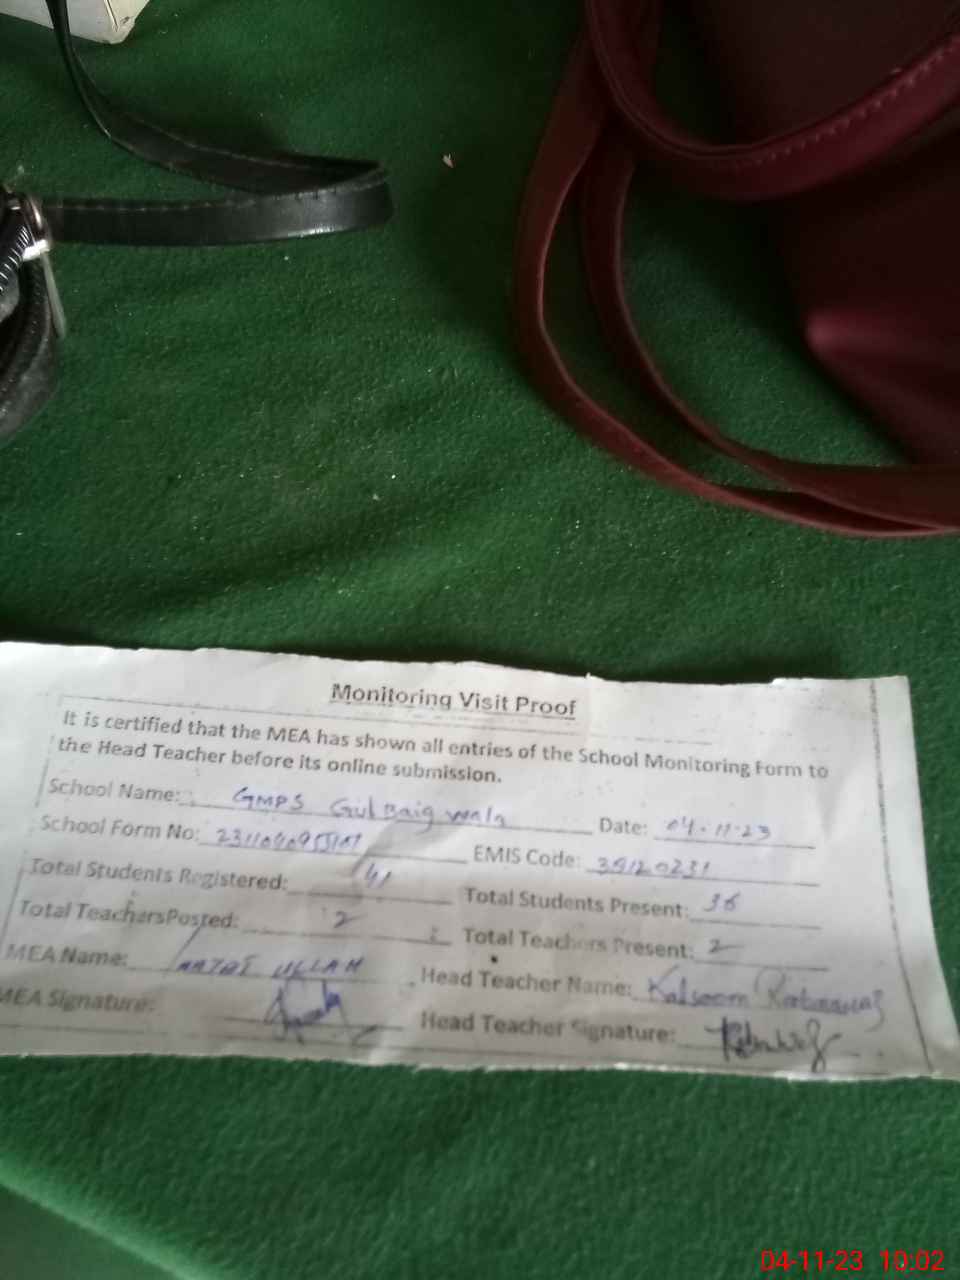 Monitoring Visit Proof
It is certified that the MEA has shown all entries of the School Monitoring Form to
the Head Teacher before its online submission.
School Name: GMPS Gul Baig wala Date: 04-11-23
School Form No: EMIS Code: 39120231
Total Students Registered: 41 Total Students Present: 36
Total TeachersPosted: 2 Total Teachers Present: 2
MEA Name: ULLAH Head Teacher Name: Kalsoom
MEA Signature: Head Teacher Signature:
04-11-23 10:02